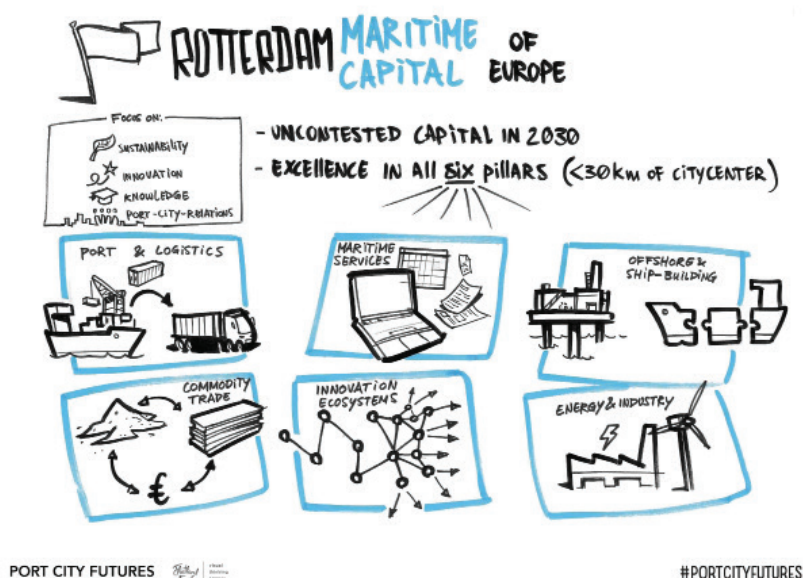 ROTTERDAM MARITIME CAPITAL OF EUROPE
FOCUS ON:
SUSTAINABILITY
INNOVATION
KNOWLEDGE
PORT-CITY-RELATIONS
- UNCONTESTED CAPITAL IN 2030
- EXCELLENCE IN ALL SIX PILLARS (<30km OF CITYCENTER)
PORT & LOGISTICS
MARITIME
SERVICES
OFFSHORE &
SHIP-BUILDING
COMMODITY
TRADE
€
INNOVATION
ECOSYSTEMS
ENERGY & INDUSTRY
PORT CITY FUTURES
#PORTCITYFUTURES